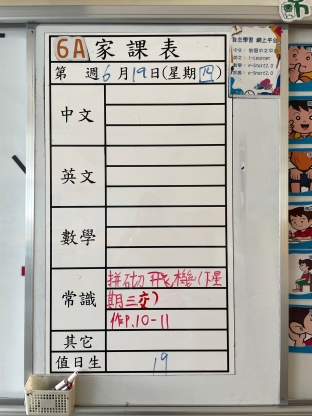 6A家課表
第 週6月19日(星期四)
中文
英文
數學
常識
拼砌飛機(下星
期三交)
作P.10-11
其它
值日生 19
自主學習 網上平台